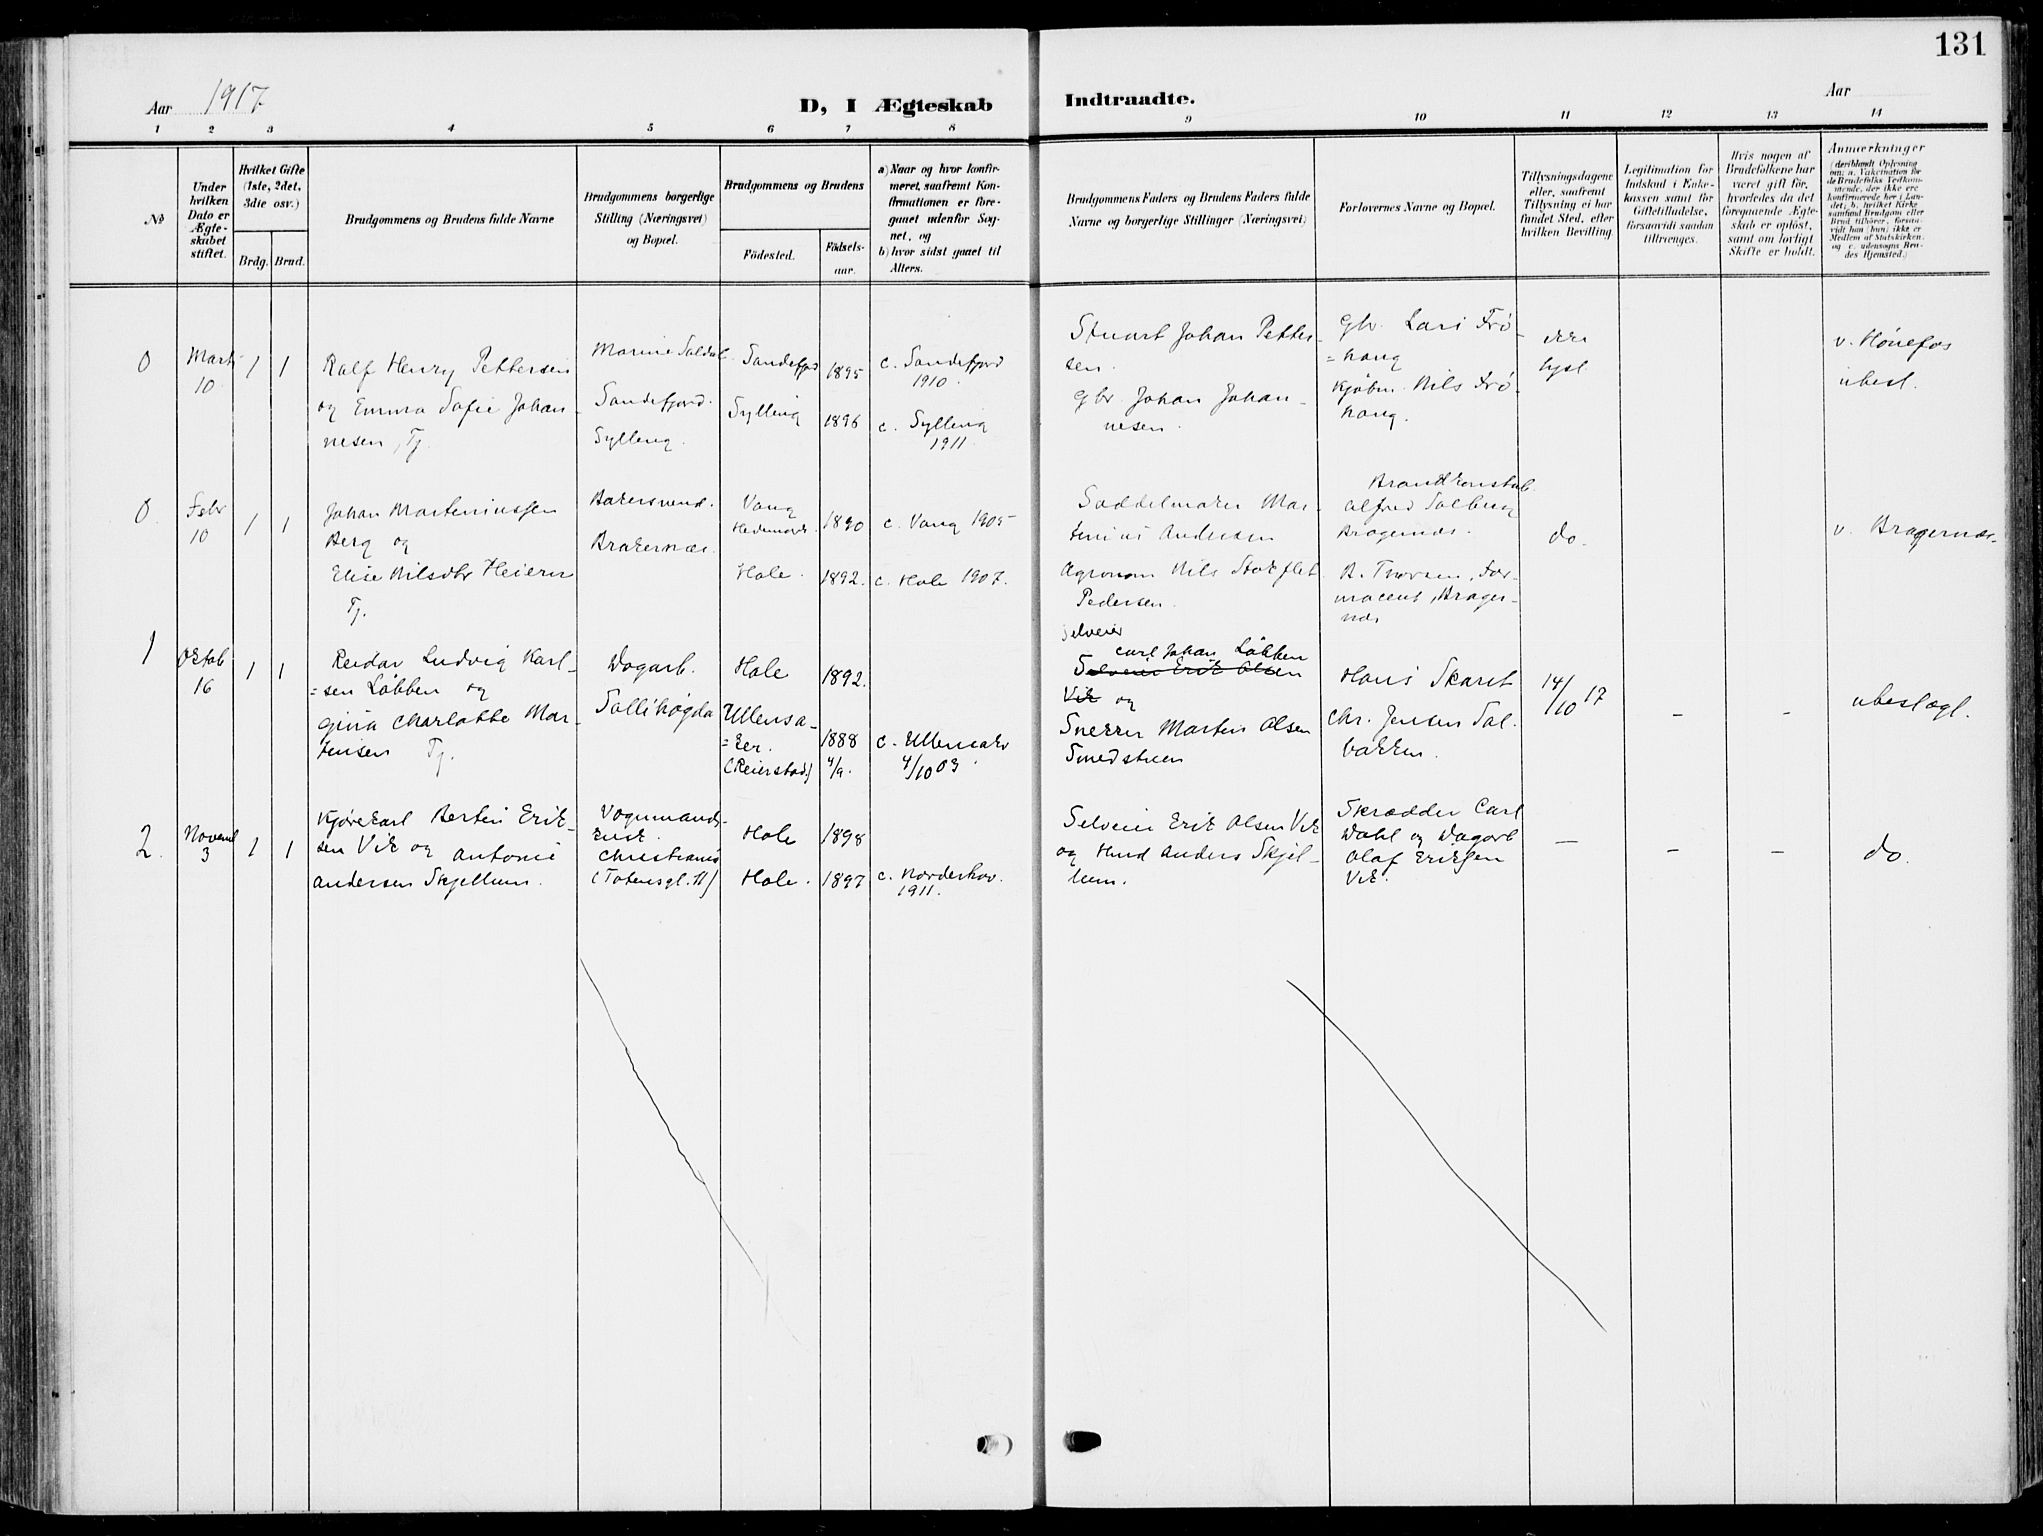 131
Aar 1917
D, I Ægteskab
Indtraadte.
Aar
1 2 3 4 5 6 7 8 9 10 11 12 13 14
No
Under
hvilken
Dato er
Ægte-
skabet
stiftet.
Hvilket Gifte
(1ste, 2det,
3die osv.)
Brdg. Brud.
Brudgommens og Brudens fulde Navne
Brudgommens borgerlige
Stilling (Næringsvei)
og Bopæl.
Brudgommens og Brudens
Fødested.
Fødsels-
aar.
a) Naar og hvor konfir-
meret, saafremt Kon-
firmationen er fore-
gaaet udenfor Sog-
net, og
b) hvor sidst gaaet til
Alters.
Brudgommens Faders og Brudens Faders fulde
Navne og borgerlige Stillinger (Næringsvei)
Forlovernes Navne og Bopæl.
Tillysningsdagene
eller, saafremt
Tillysning ei har
fundet Sted, efter
hvilken Bevilling.
Legitimation for
Indskud i Enke-
kassen samt for
Giftetilladelse,
forsaavidt saadan
tiltrænges.
Hvis nogen af
Brudefolkene har
været gift før,
hvorledes da det
foregaaende Ægte-
skab er opløst,
samt om lovligt
Skifte er holdt.
Anmærkninger
(deriblandt Oplysning
om: a. Vakcination for
de Brudefolks Vedkom-
mende, der ikke ere
konfirmerede her i Lan-
det; b. hvilket Kirke
samfund Brudgom eller
Brud tilhører, forsaa-
vidt han (hun) ikke er
Medlem af Statskirken,
og c. udensogns Bru-
des Hjemsted.)
0
Marts
10
1 1
Ralf Henry Pettersen
og Emma Sofie Johan-
nesen, Tj.
Marine Soldat
Sandefjord.
Sylling.
Sandefjord
Sylling
1895
1896
c. Sandefjord
1910.
c. Sylling
1911.
Stuart Johan Petter-
sen.
Gbr. Johan Johan-
nesen.
Gbr. Lars Frø-
=haug
Kjøbm. Nils Frø-
haug.
ikke
lyst
v. Hønefos
ubesl.
0.
Febr
10
1 1
Johan Marteniussen
Berg og
Elise Nilsdtr Heieren
Tj.
Bakersvend.
Brakernæs.
Vang
Hedemark.
Hole.
1890
1892.
c. Vang 1905
c. Hole 1907.
Saddelmaker Mar-
tinius Andersen
Agronom Nils Stokflet
Pedersen.
Brandkonstab.
Alfred Solberg
Bragernæs.
B. Thorsen, Far-
maceut, Brager-
næs
do.
v. Bragernæs.
1
Oktob
16
1 1
Reidar Ludvig Karl-
=sen Løbben og
Gina Charlotte Mar-
tensen Tj.
Dagarb.
Sollihøgda
Hole
Ullensa-
=ker.
(Reierstad)
1892.
1888
4/9.
c. Ullensaker
4/10 03
Selveier
Carl Johan Løbben
Selveier Erik Olsen
Vik og
Snekker Martin Olsen
Smedstuen
Hans Skaret
Chr. Jensen Sol-
bakken.
14/10 17
-
-
ubeslægt.
2.
Novemb
3
1 1
Kjørekarl Bertin Erik-
sen Vik og Antonie
Andersen Skjellum.
Vognmands-
kusk.
Christiania
(Totensgt. 11)
Hole
Hole.
1898
1897
c. Norderhov.
1911.
Selveier Erik Olsen Vik
og Hmd Anders Skjel-
lum.
Skrædder Carl
Dahl og Dagarb
Olaf Eriksen
Vik.
-
-
-
do.